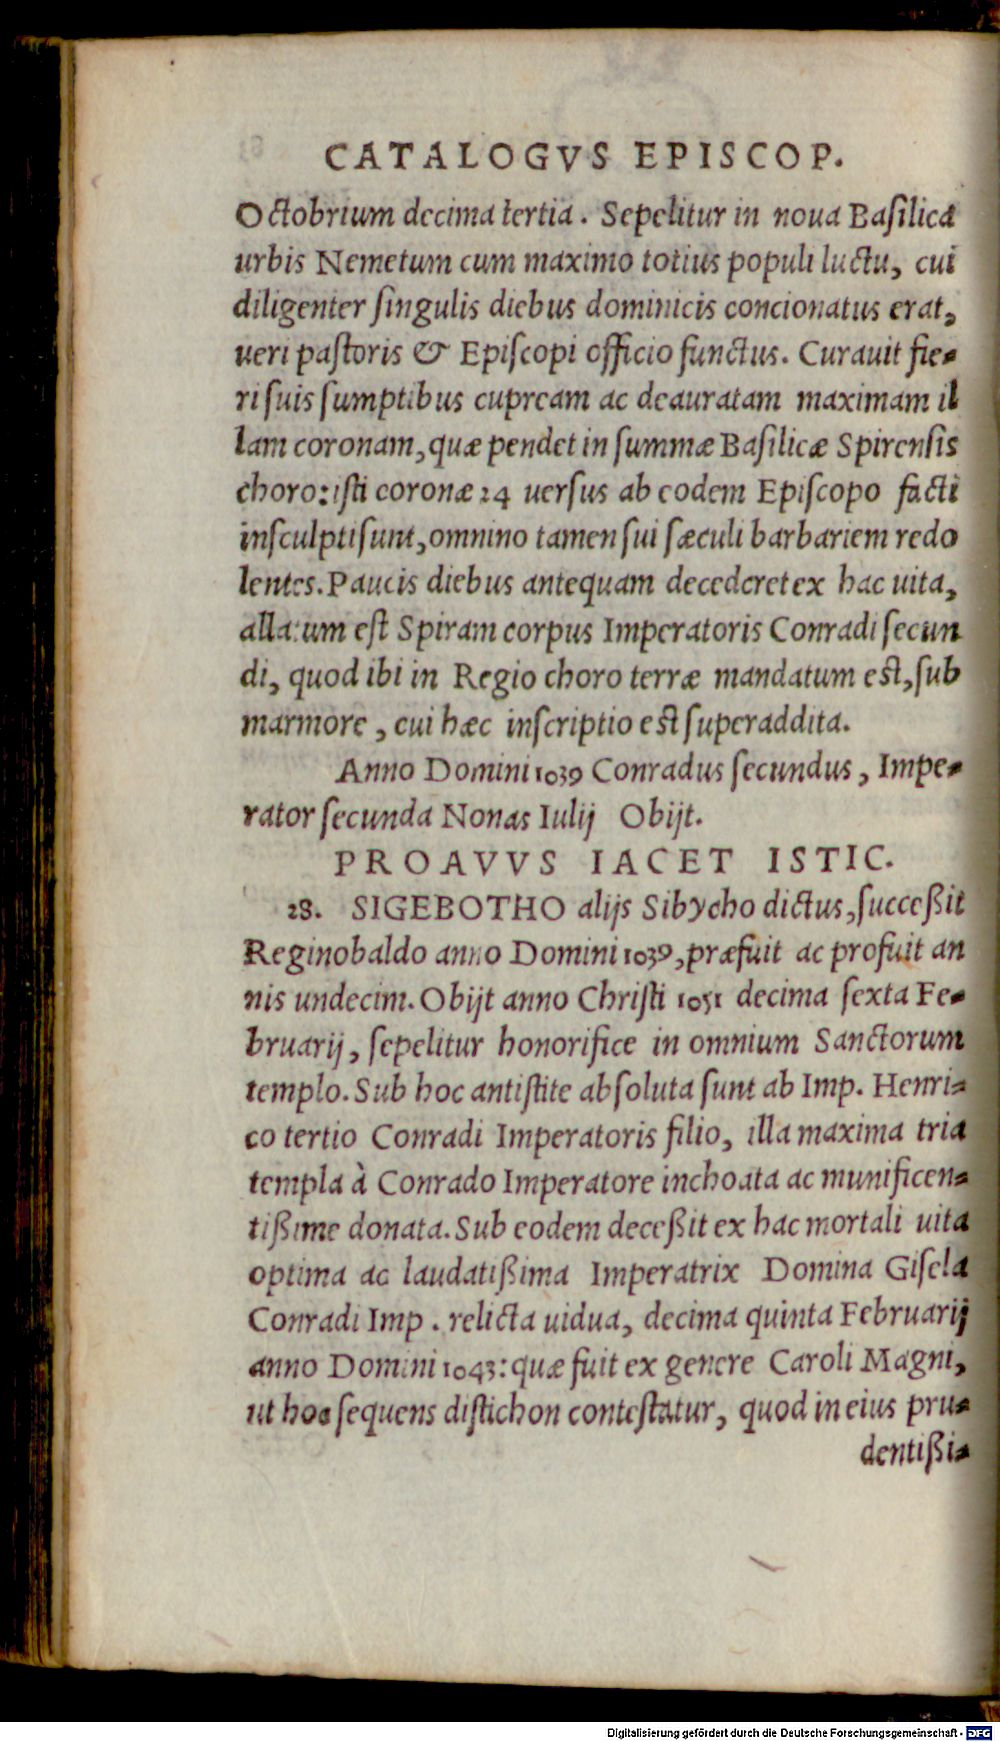 CATALOGVS EPISCOP.
Octobrium decima tertia. Sepelitur in noua Basilica
urbis Nemetum cum maximo totius populi luctu, cui
diligenter singulis diebus dominicis concionatus erat,
ueri pastoris & Episcopi officio functus. Curauit fie-
ri suis sumptibus cupream ac deauratam maximam il
lam coronam, quæ pendet in summæ Basilicæ Spirensis
choro: isti coronæ 24 uersus ab eodem Episcopo facti
insculpti sunt, omnino tamen sui sæculi barbariem redo
lentes. Paucis diebus antequam decederet ex hac uita,
allatum est Spiram corpus Imperatoris Conradi secun
di, quod ibi in Regio choro terræ mandatum est, sub
marmore, cui hæc inscriptio est superaddita.
Anno Domini 1039 Conradus secundus, Impe-
rator secunda Nonas Iulij Obijt.
PROAVVS IACET ISTIC.
28. SIGEBOTHO alijs Sibycho dictus, successit
Reginobaldo anno Domini 1039, præfuit ac profuit an
nis undecim. Obijt anno Christi 1051 decima sexta Fe-
bruarij, sepelitur honorifice in omnium Sanctorum
templo. Sub hoc antistite absoluta sunt ab Imp. Henri-
co tertio Conradi Imperatoris filio, illa maxima tria
templa à Conrado Imperatore inchoata ac munificen-
tißime donata. Sub eodem deceßit ex hac mortali uita
optima ac laudatißima Imperatrix Domina Gisela
Conradi Imp. relicta uidua, decima quinta Februarij
anno Domini 1043: quæ fuit ex genere Caroli Magni,
ut hoc sequens distichon contestatur, quod in eius pru-
dentißi-
Digitalisierung gefördert durch die Deutsche Forschungsgemeinschaft - DFG